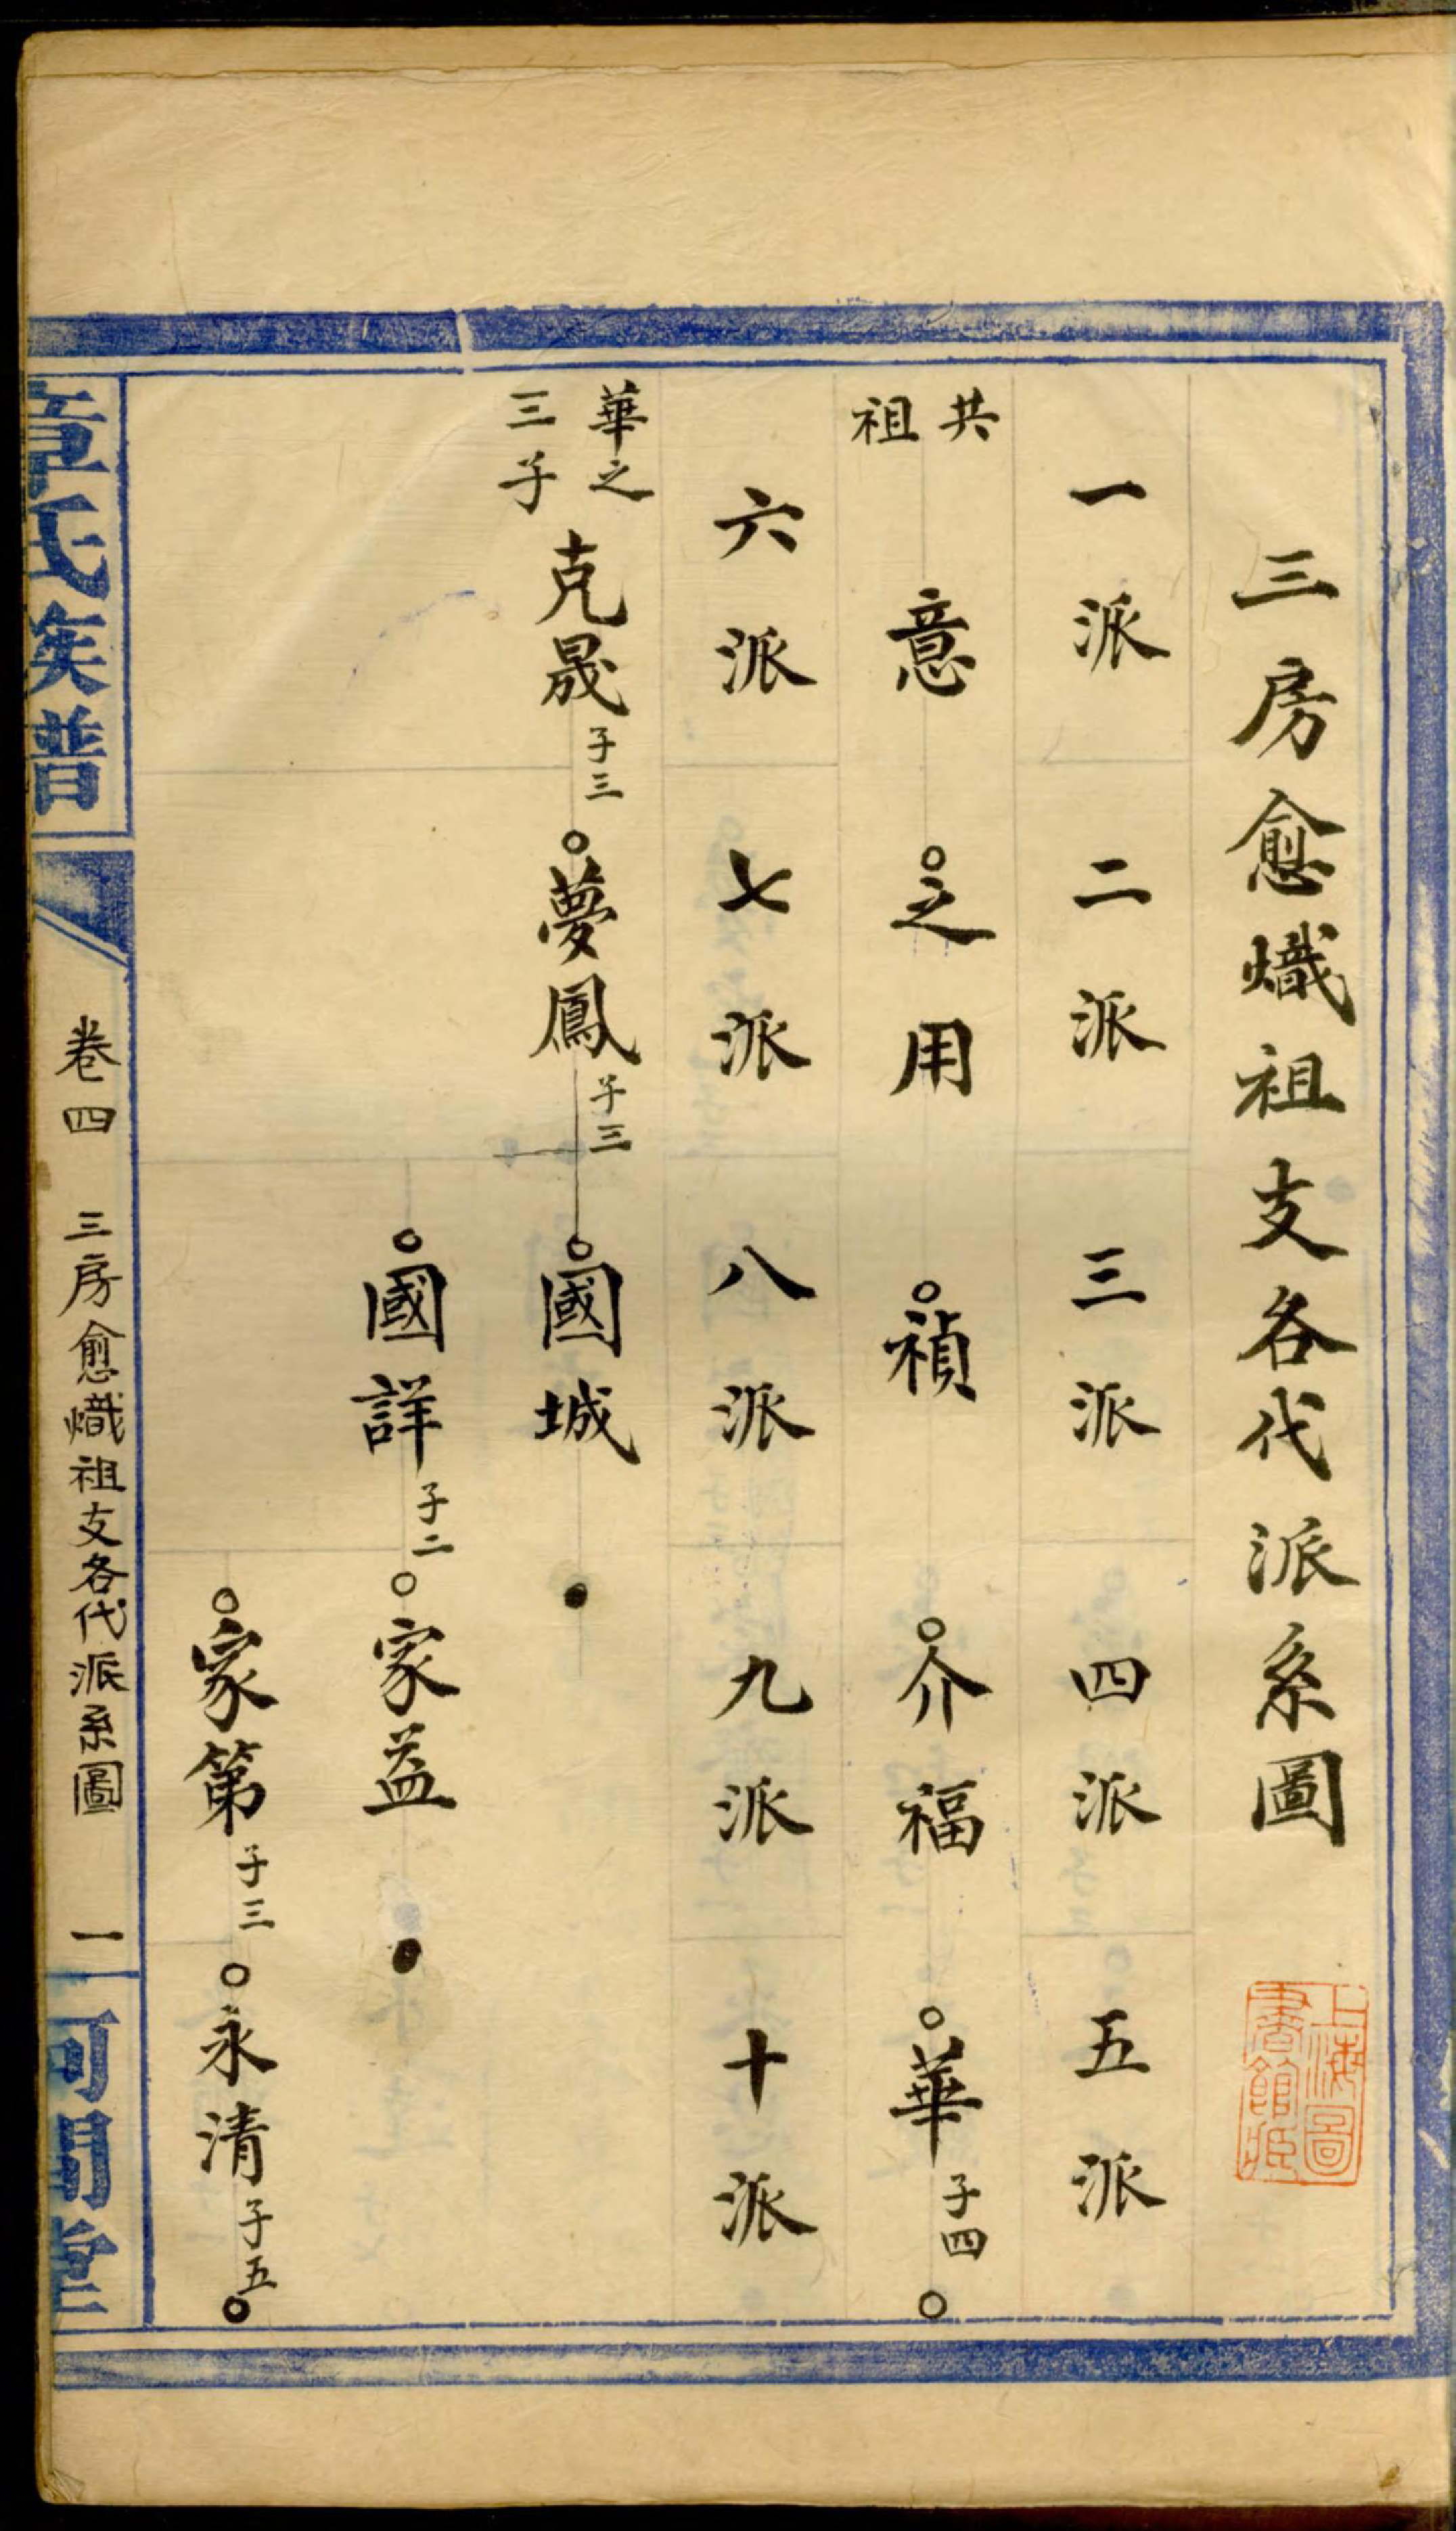 三房愈熾祖支各代派系圖
上海圖書館藏
一派 二派 三派 四派 五派
共祖 意 之用 禎 介福 華 子四
六派 七派 八派 九派 十派
華之三子 克晟 子三 夢鳳 子三 國城
國詳 子二 家益
家第 子三 永清 子五
章氏族譜 卷四 三房愈熾祖支各代派系圖 一 河間堂